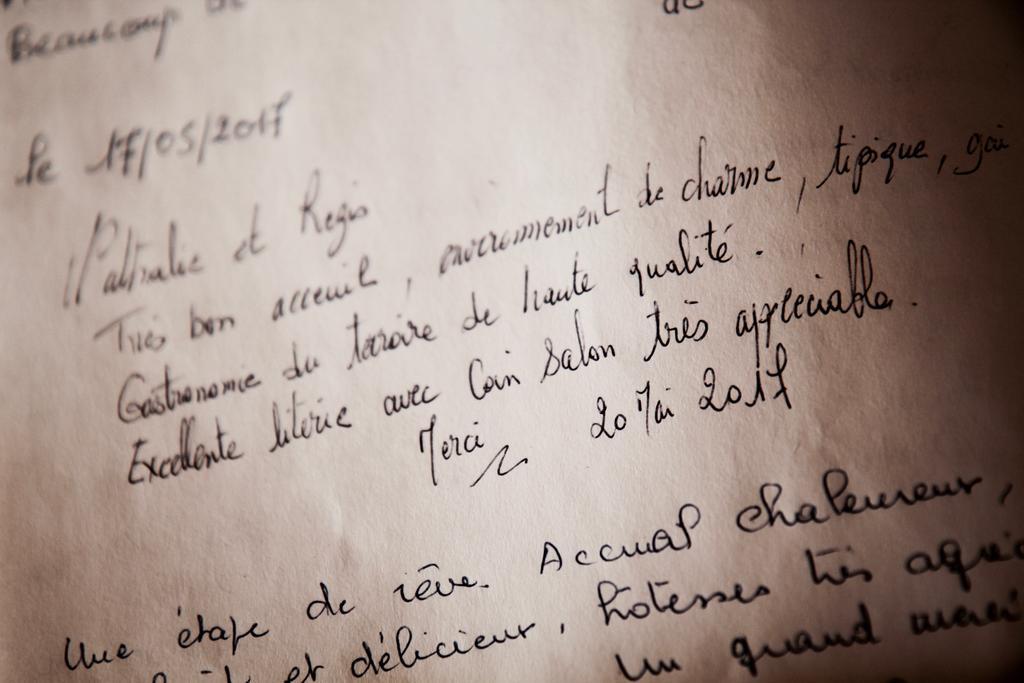 Beaucoup de
de
le 17/05/2017
Nathalie et Regis
Très bon acceuil, environnement de charme, tipique, gai
Gastronomie du terroire de haute qualité.
Excellente literie avec Coin Salon très appreciable.
Merci 20 Mai 2017
Une étape de rêve. Accueil chaleureux,
et délicieux, hotesses très
Un grand merci